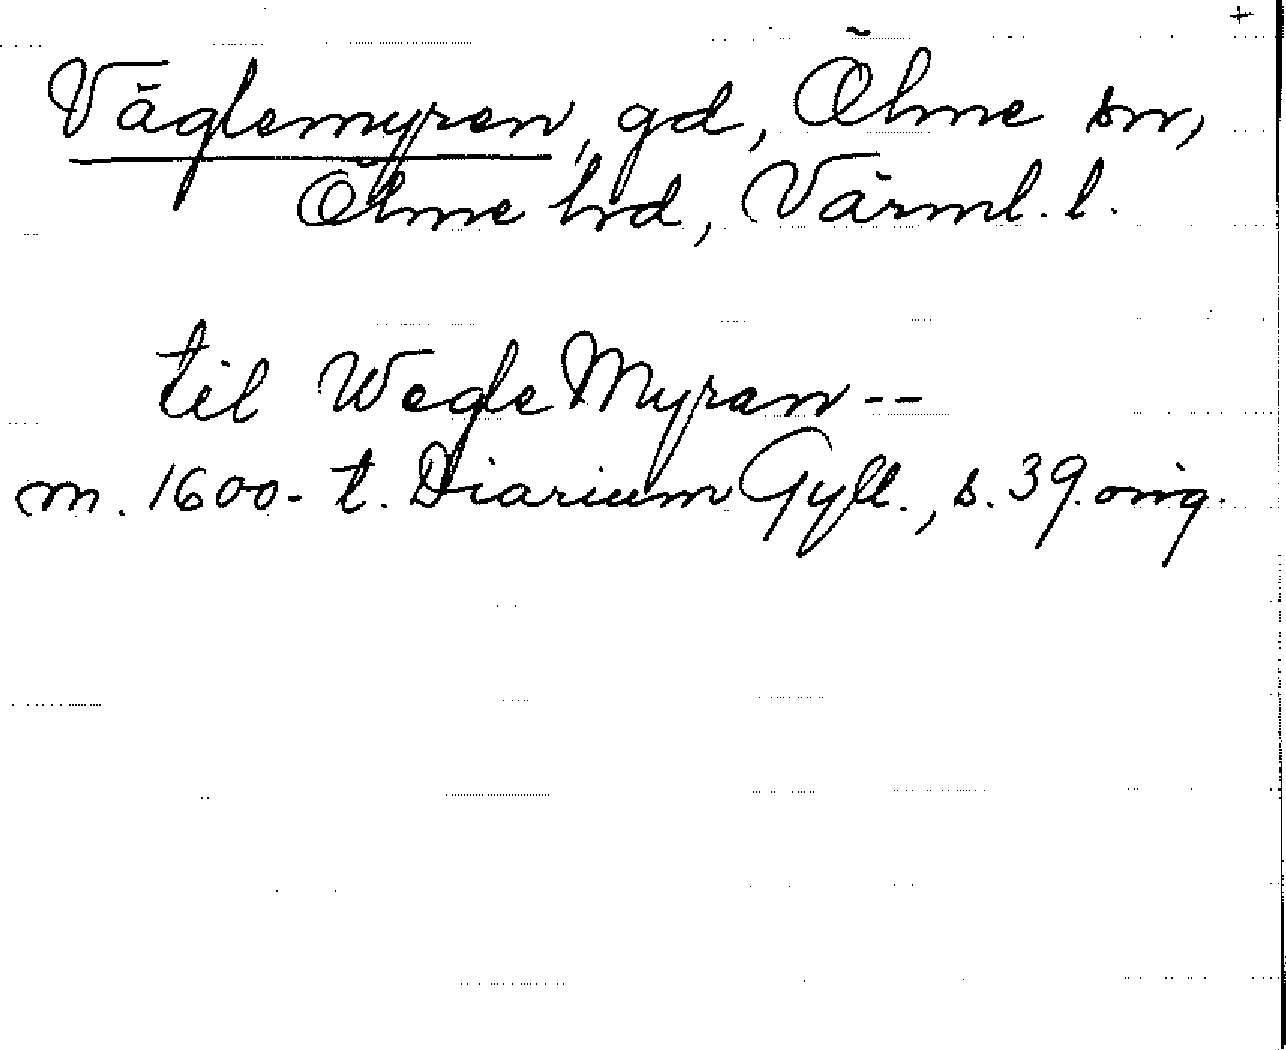 +
Väglemyren, gd, Ölme sn,
Ölme hrd, Värml. l.
til Wegle Myran --
m. 1600- t. Diarium Gyll., s. 39. orig.